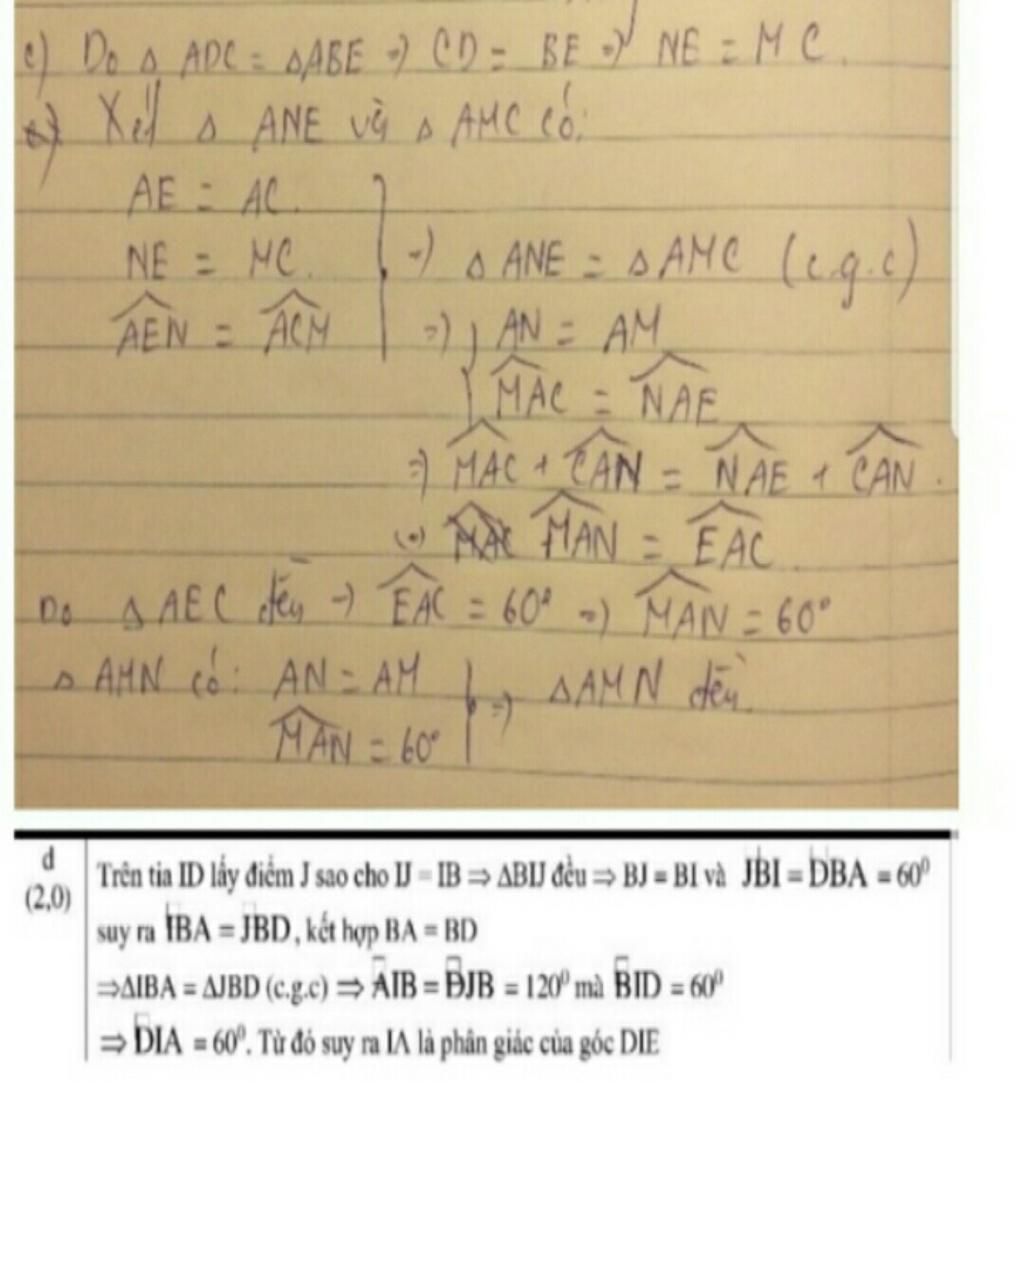 c) Do Δ ADC = ΔABE => CD = BE => NE = MC.
Xét Δ ANE và Δ AMC có:
AE = AC.
NE = MC. => Δ ANE = Δ AMC (c.g.c)
AEN = ACM => AN = AM
MAC = NAE
=> MAC + CAN = NAE + CAN.
(=) MAN = EAC.
Do Δ AEC đều => EAC = 60° => MAN = 60°
Δ AMN có: AN = AM => ΔAMN đều.
MAN = 60°
d
(2,0)
Trên tia ID lấy điểm J sao cho IJ = IB ⇒ ΔBIJ đều ⇒ BJ = BI và JBI = DBA = 60⁰
suy ra IBA = JBD, kết hợp BA = BD
⇒ΔIBA = ΔJBD (c.g.c) ⇒ AIB = DJB = 120⁰ mà BID = 60⁰
⇒ DIA = 60⁰. Từ đó suy ra IA là phân giác của góc DIE